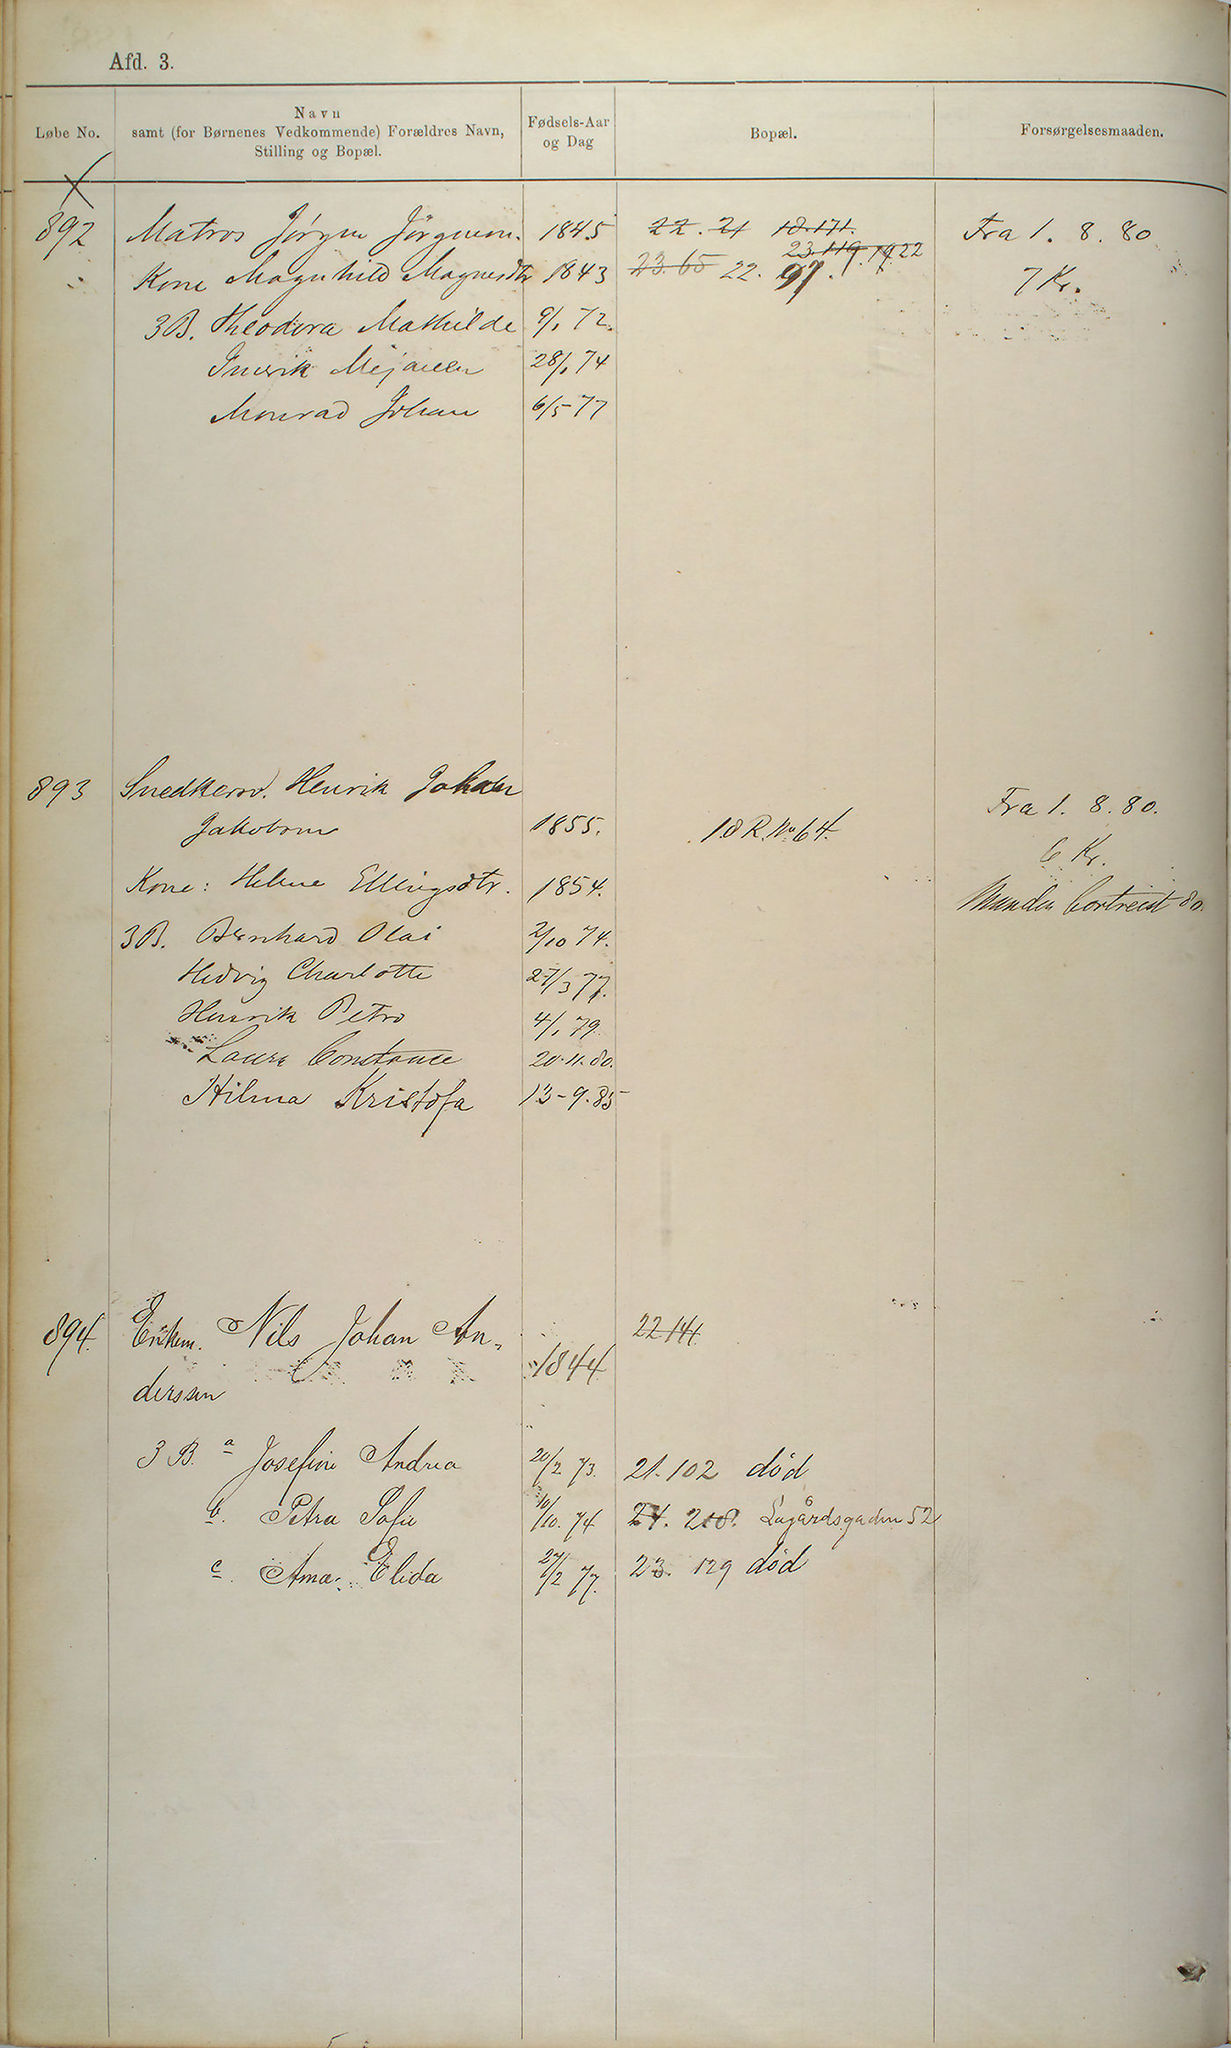 Afd. 3.
Løbe No.
Navn
samt (for Børnenes Vedkommende) Forældres Navn,
Stilling og Bopæl.
Fødsels-Aar
og Dag
Bopæl.
Forsørgelsesmaaden.
892 Matros Jörgen Jörgensen. 1845 22. 21 18.171. Fra 1. 8. 80
23.119. 19.22
Kone Magnhild Magnesdtr 1843 23.65 22. 97. 7 Kr.
3B. Theodora Mathilde 9/1 72.
28/1 74
Monrad Johan 6/5 77
893 Snedkersv. Henrik Johan
Jakobsen 1855. 18 R. No 64. Fra 1. 8. 80.
6 Kr.
Kone: Helene Ellingsdtr. 1854. Manden bortreist 80.
3B. Bernhard Olai 2/10 74.
Hedvig Charlotte 27/3 77.
Henrik Petro 4/1 79.
Laura Constance 20.11.80.
Hilma Kristofa 13-9.85
894. Enkem. Nils Johan An- 22 141
1844
derssen
3 B. a Josefine Andrea 20/2 73. 21. 102 död
b. Petra Sofie 10/10. 74 24. 218. Lagårdsgaden 52
c. Anna Elida 27/2 77. 23. 129 död